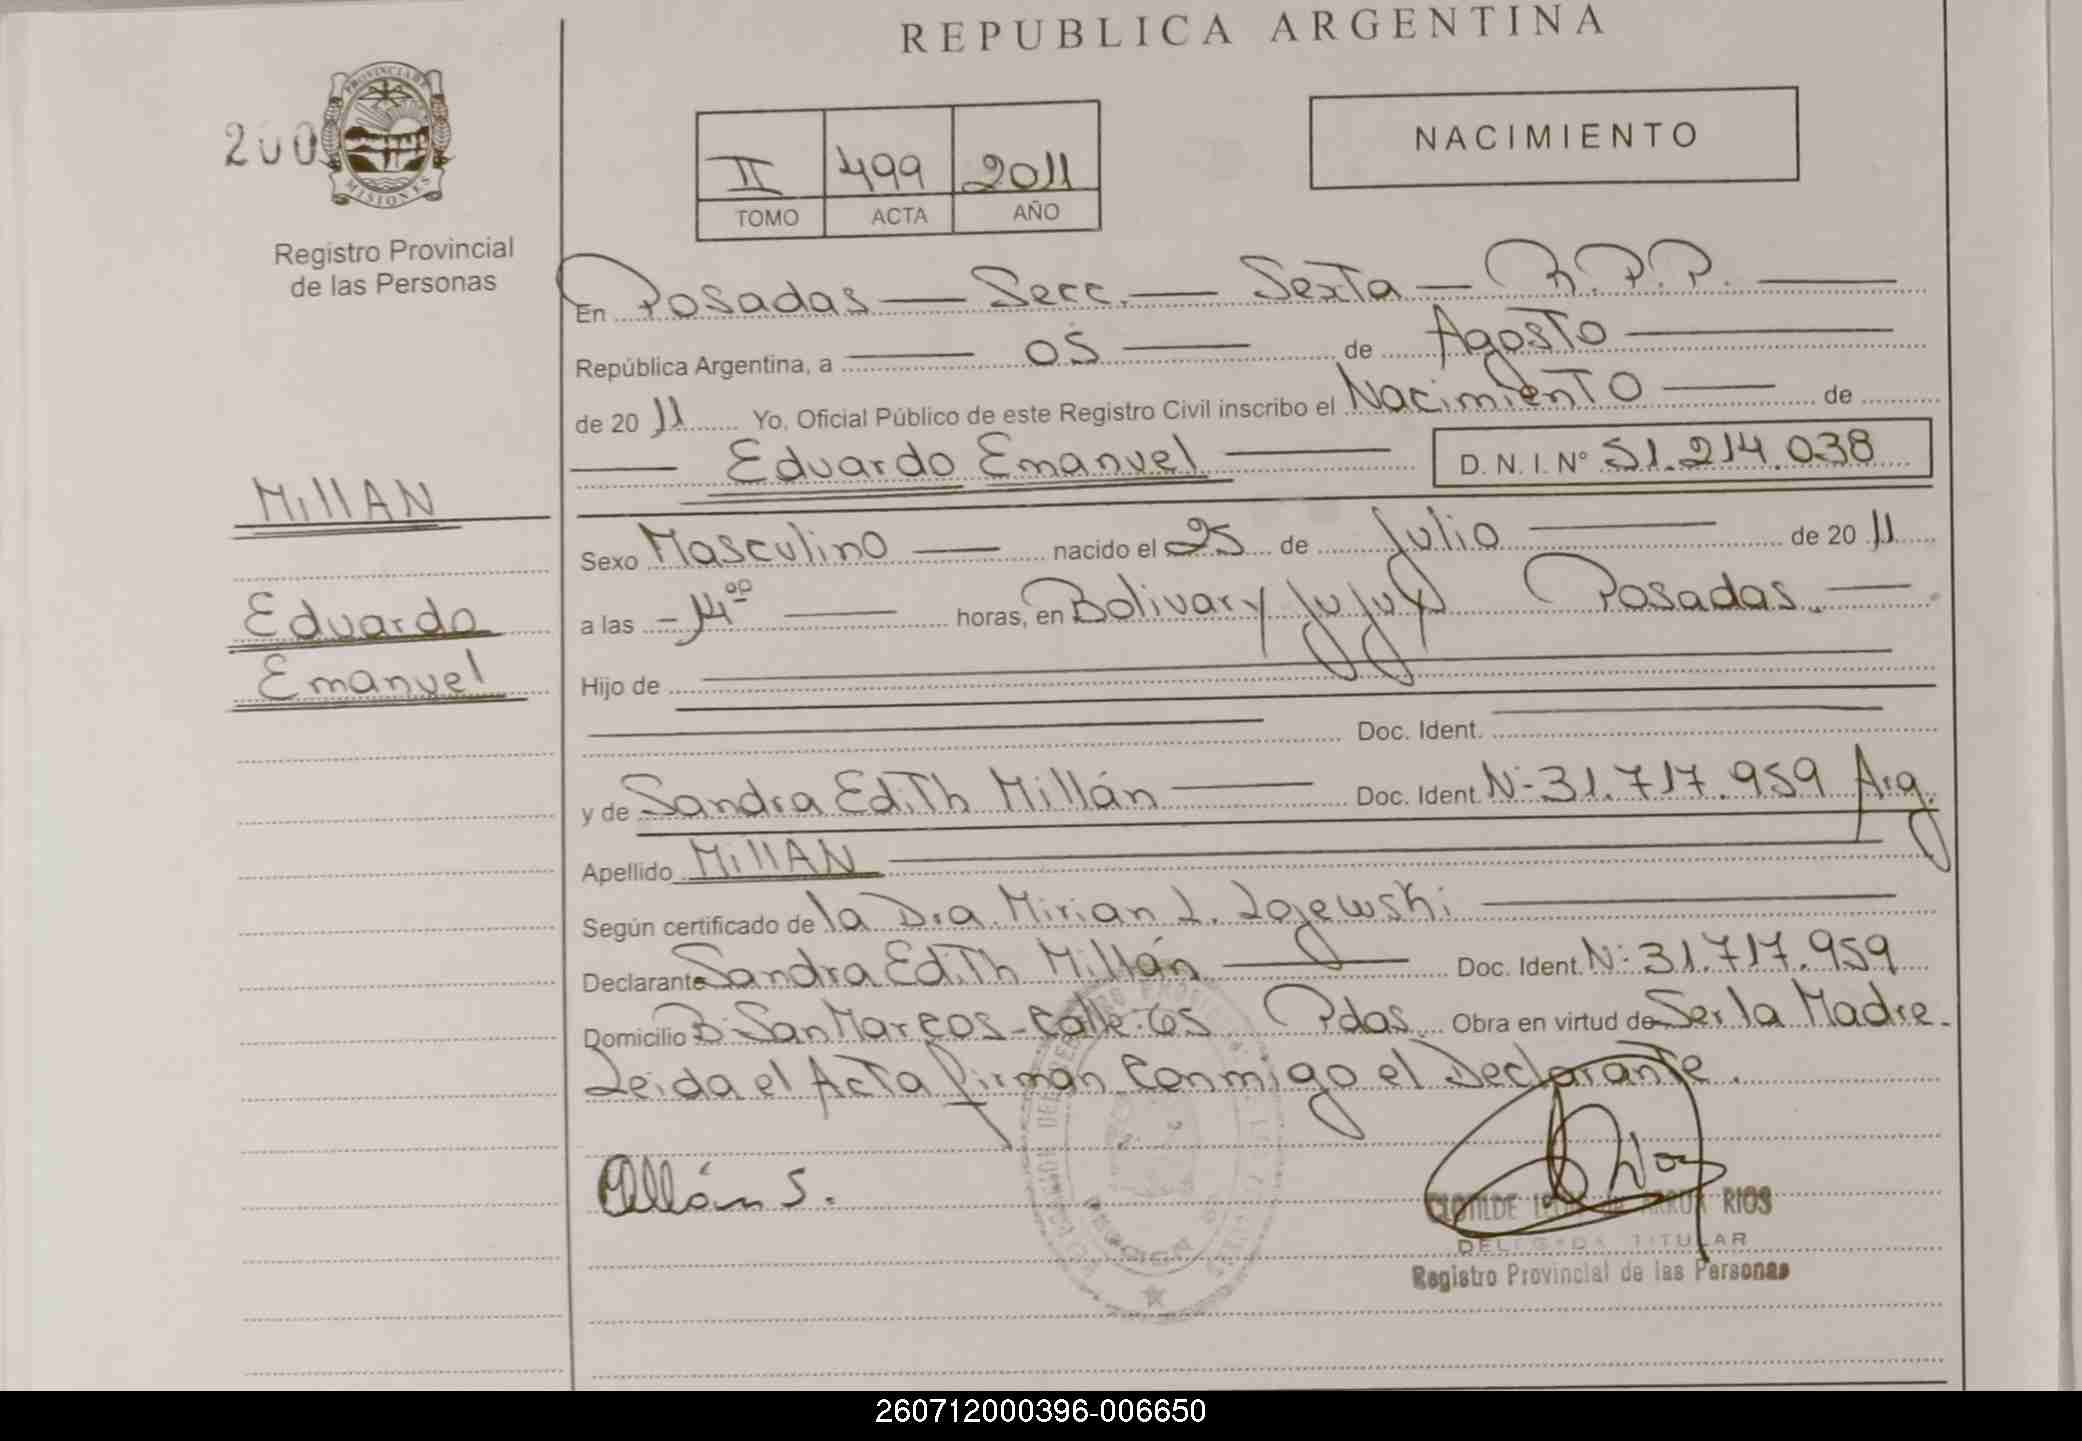 REPUBLICA ARGENTINA
200
PROVINCIA DE
MISIONES
Registro Provincial
de las Personas
II 499 2011
TOMO ACTA AÑO
NACIMIENTO
En Posadas — Secc. — Sexta — R.P.P. —
República Argentina, a — 05 — de Agosto —
de 2011 Yo, Oficial Público de este Registro Civil inscribo el Nacimiento — de
— Eduardo Emanuel — D. N. I. Nº 51.214.038
MillAN
Eduardo
Emanuel
Sexo Masculino — nacido el 25 de Julio — de 2011
a las - 14 oo — horas, en Bolivar y Jujuy Posadas. —
Hijo de —
— Doc. Ident. —
y de Sandra Edith Millán — Doc. Ident. Nº 31.717.959 Arg.
Apellido MillAN —
Según certificado de la Dra. Mirian L. Zajewski —
Declarante Sandra Edith Millán — Doc. Ident. Nº 31.717.959
Domicilio Bº San Marcos - Calle. 65 Pdas. Obra en virtud de Ser la Madre.
Leida el Acta firman conmigo el Declarante.
Millán S.
CLOTILDE RIOS
DELEGADA TITULAR
Registro Provincial de las Personas
260712000396-006650